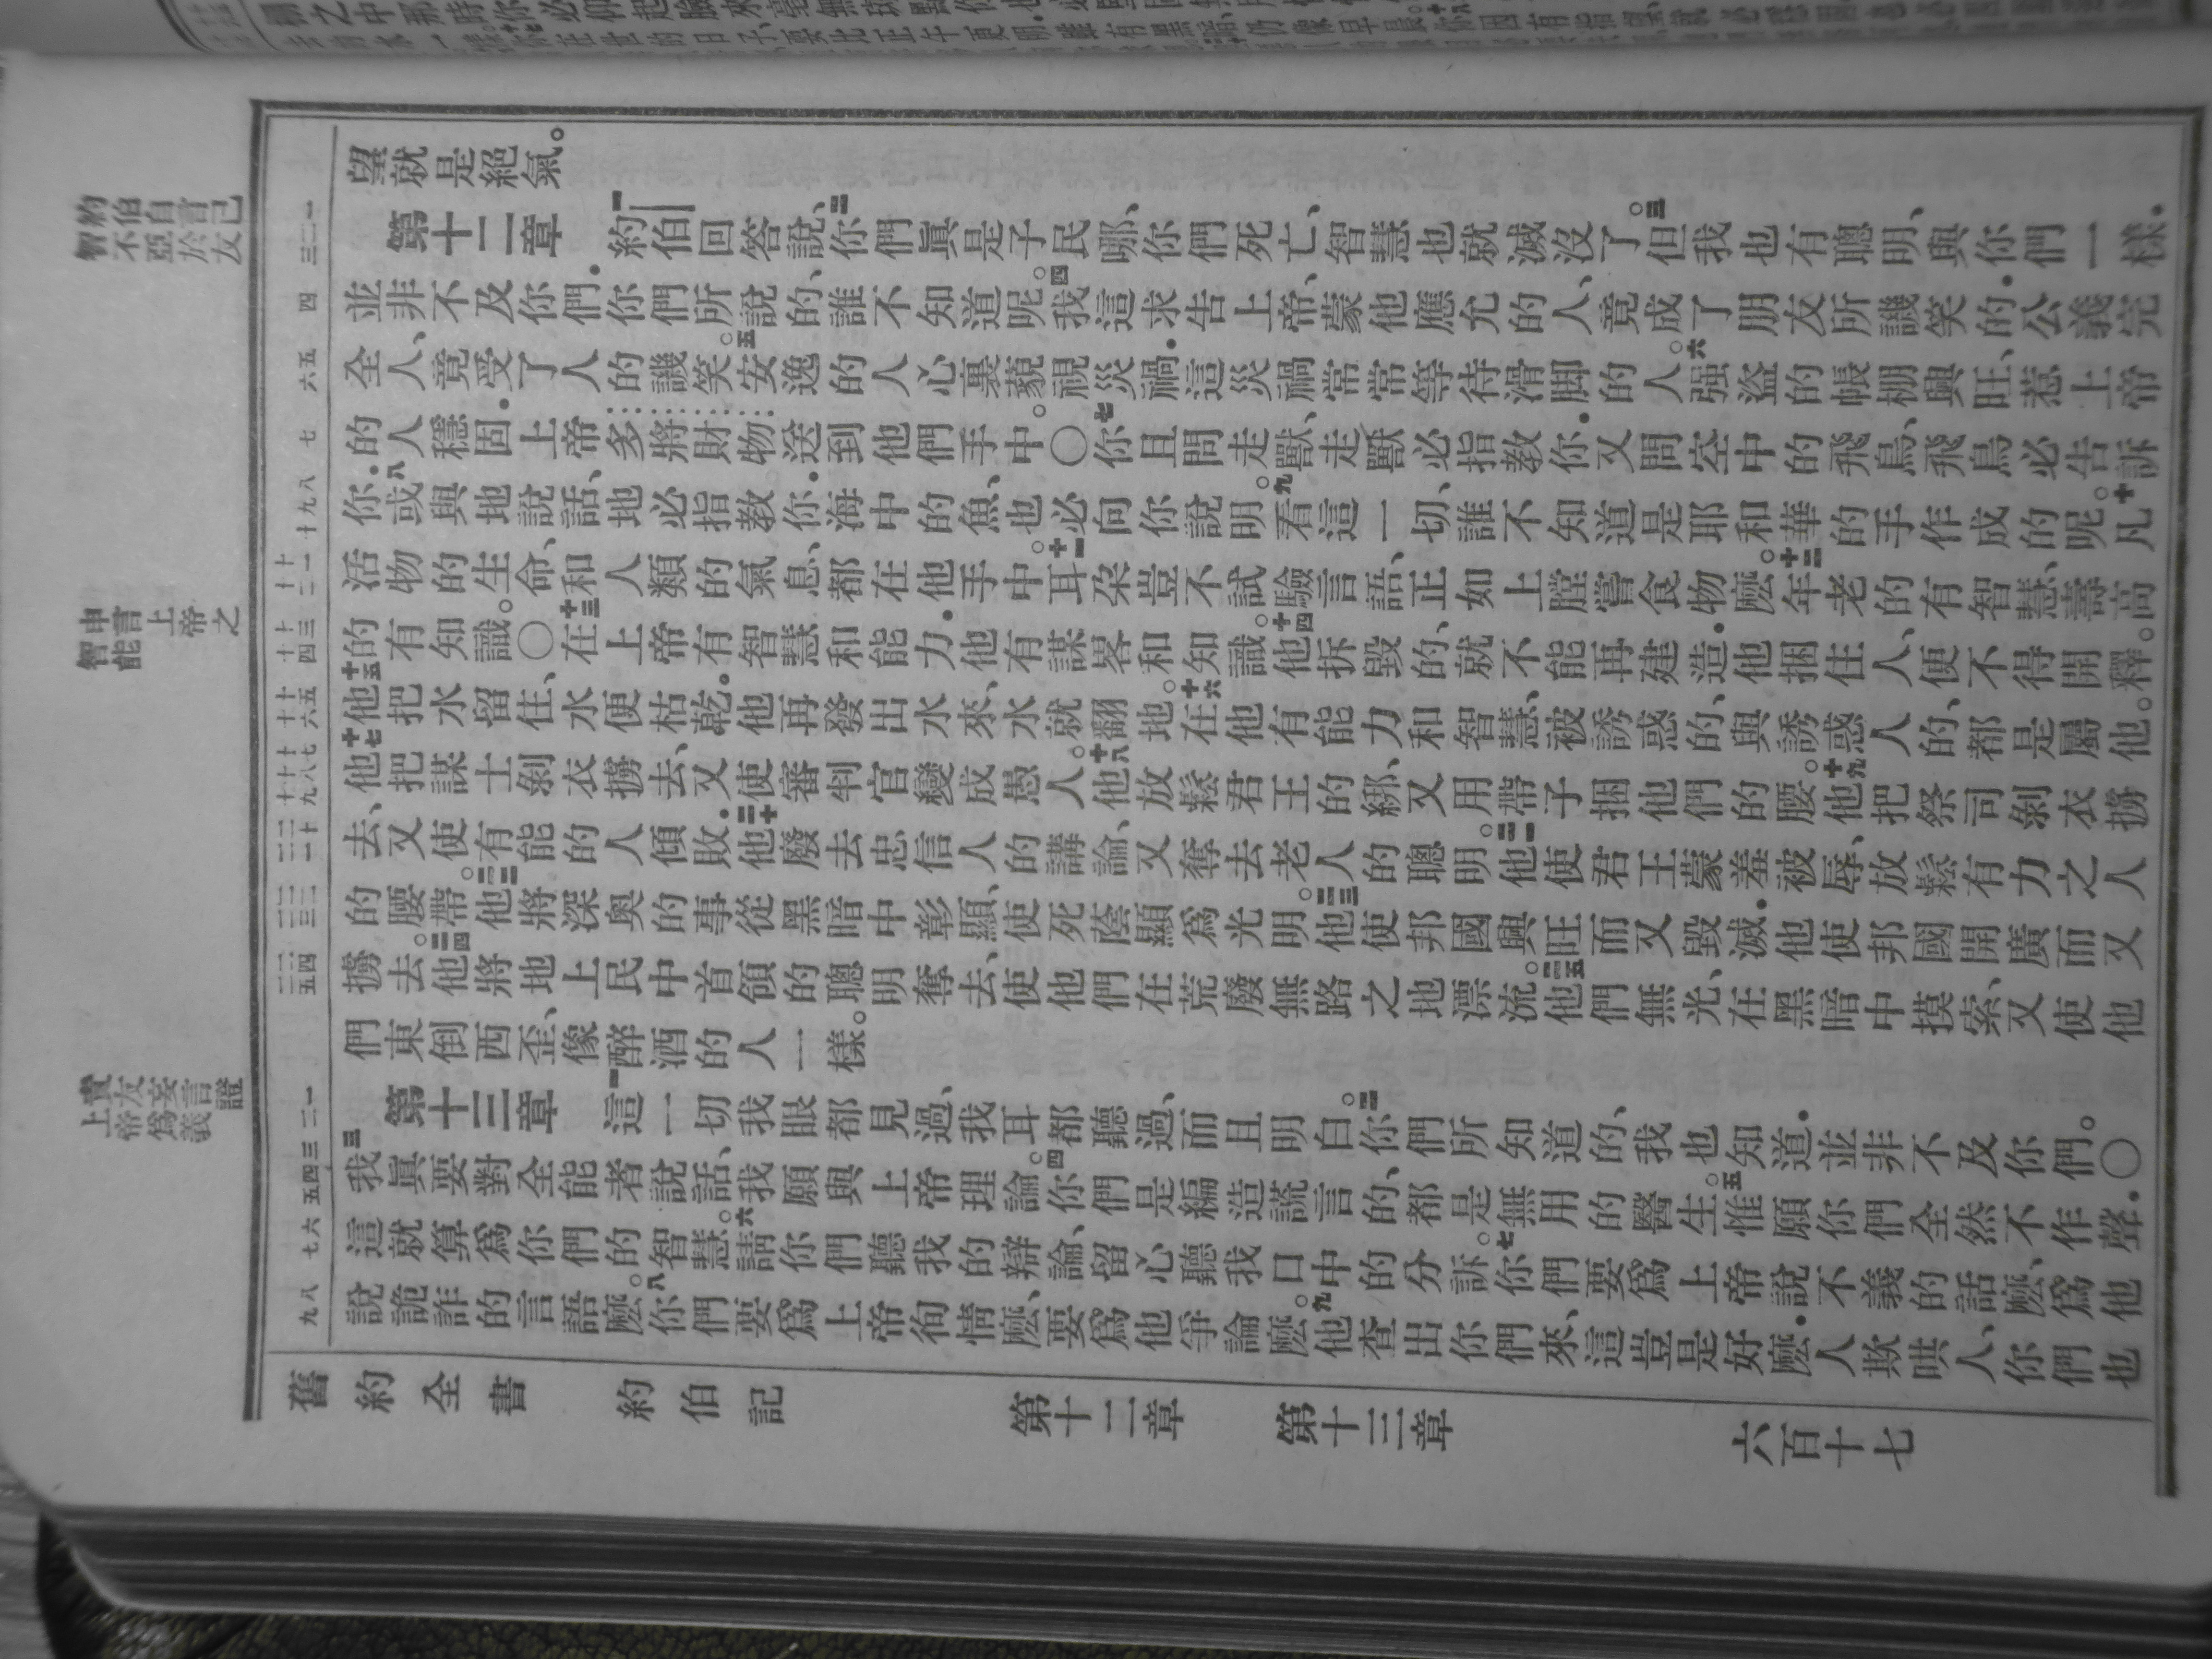 望就是絕氣。
第十二章 一約伯回答說、二你們眞是子民哪、你們死亡、智慧也就滅沒了。三但我也有聰明、與你們一樣．
並非不及你們．你們所說的、誰不知道呢。四我這求告上帝、蒙他應允的人、竟成了朋友所譏笑的．公義完
全人、竟受了人的譏笑。五安逸的人心裏藐視災禍．這災禍常常等待滑脚的人。六强盜的帳棚興旺、惹上帝
的人穩固．上帝多將財物送到他們手中。〇七你且問走獸、走獸必指教你．又問空中的飛鳥、飛鳥必告訴
你．八或與地說話、地必指教你．海中的魚、也必向你說明。九看這一切、誰不知道是耶和華的手作成的呢。十凡
活物的生命、和人類的氣息、都在他手中。十一耳朵豈不試驗言語、正如上膛嘗食物麽。十二年老的有智慧、壽高
的有知識。〇十三在上帝有智慧和能力．他有謀畧和知識。十四他拆毀的、就不能再建造．他捆住人、便不得開釋。
十五他把水留住、水便枯乾．他再發出水來、水就翻地。十六在他有能力和智慧、被誘惑的、與誘惑人的、都是屬他。
十七他把謀士剝衣擄去、又使審判官變成愚人。十八他放鬆君王的綁、又用帶子捆他們的腰。十九他把祭司剝衣擄
去、又使有能的人傾敗．二十他廢去忠信人的講論、又奪去老人的聰明。二一他使君王蒙羞被辱、放鬆有力之人
的腰帶。二二他將深奧的事從黑暗中彰顯、使死蔭顯爲光明。二三他使邦國興旺而又毀滅．他使邦國開廣而又
擄去。二四他將地上民中首領的聰明奪去、使他們在荒廢無路之地漂流。二五他們無光、在黑暗中摸索、又使他
們東倒西歪、像醉酒的人一樣。
第十三章 一這一切我眼都見過、我耳都聽過、而且明白。二你們所知道的、我也知道．並非不及你們。〇
三我眞要對全能者說話、我願與上帝理論。四你們是編造謊言的、都是無用的醫生。五惟願你們全然不作聲．
這就算爲你們的智慧。六請你們聽我的辯論、留心聽我口中的分訴。七你們要爲上帝說不義的話麽、爲他
說詭詐的言語麽。八你們要爲上帝徇情麽、要爲他爭論麽。九他查出你們來、這豈是好麽．人欺哄人、你們也
舊約全書 約伯記 第十二章 第十三章 六百十七
約伯自言己
智不亞於友
申言上帝之
智能
責友妄言證
上帝爲義